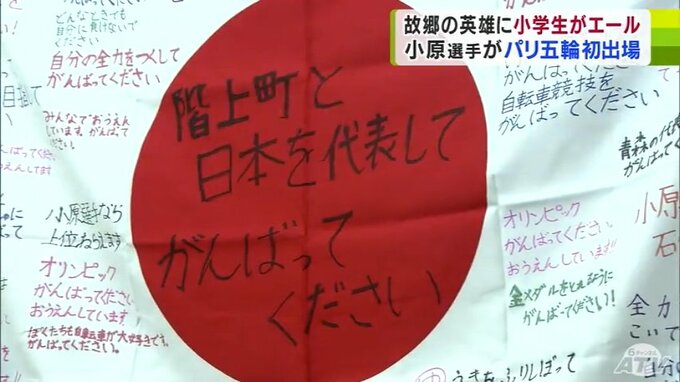 故郷の英雄に小学生がエール
小原選手がパリ五輪初出場
階上町と
日本を代表して
がんばって
ください
どんなときでも
自分に負けないで
ください
自分の全力をつくして
がんばってください
みんなでおうえん
しています。がんばって
ください
小原選手なら
上位ねらえます
オリンピック
がんばってください
おうえんしています!
ぼくたちも自転車が大好きです。
がんばってください。
自転車競技を
がんばって
ください
青森の代表
がんばって
小原
オリンピック
がんばってください。
おうえんしています!!
金メダルをとれるように
がんばってください!
全力
こいて
うきをふりしぼって
6チャンネル
ATV